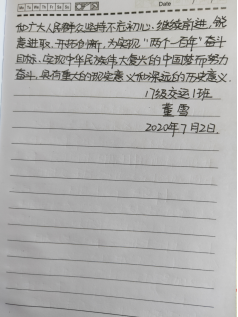 Mo Tu We Th Fr Sa Su
Date
和广大人民群众坚持不忘初心、继续前进,锐
意进取、开拓创新,为实现“两个一百年”奋斗
目标、实现中华民族伟大复兴的中国梦而努力
奋斗,具有重大的现实意义和深远的历史意义.
17级交运1班
董雪
2020年7月2日.